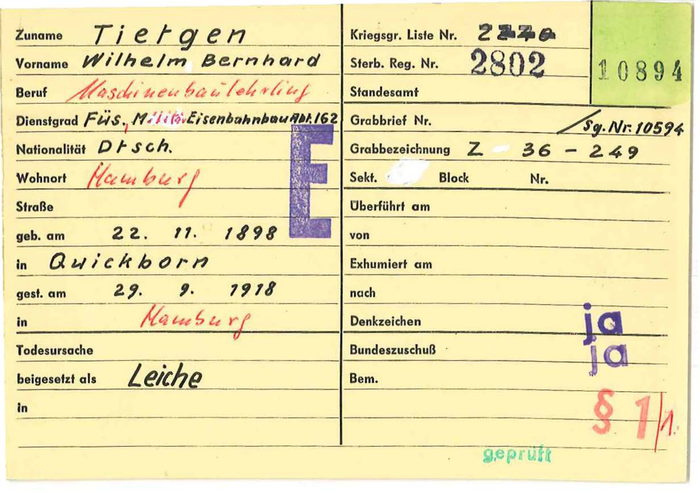 Zuname Tietgen
Vorname Wilhelm Bernhard
Beruf Maschinenbaulehrling
Dienstgrad Füs., Milit. Eisenbahnbau Abt. 162
Nationalität Dtsch.
Wohnort Hamburg
Straße
geb. am 22. 11. 1898
in Quickborn
gest. am 29. 9. 1918
in Hamburg
Todesursache
beigesetzt als Leiche
in
E
Kriegsgr. Liste Nr.
Sterb. Reg. Nr. 2802
10894
Standesamt
Grabbrief Nr. /Sg. Nr. 10594
Grabbezeichnung Z - 36 - 249
Sekt. Block Nr.
Überführt am
von
Exhumiert am
nach
Denkzeichen ja
Bundeszuschuß ja
Bem.
§ 1/1.
geprüft